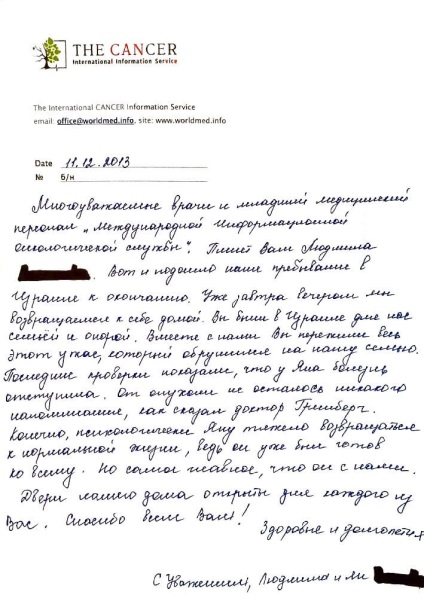 THE CANCER
International Information Service
The International CANCER Information Service
email: office@worldmed.info, site: www.worldmed.info
Date 11.12.2013
№ б/н
Многоуважаемые врачи и младший медицинский
персонал „Международной Информационной
онкологической службы". Пишет Вам Людмила
. Вот и подошло наше пребывание в
Израиле к окончанию. Уже завтра вечером мы
возвращаемся к себе домой. Вы были в Израиле для нас
семьёй и опорой. Вместе с нами Вы пережили весь
этот ужас, который обрушился на нашу семью.
Последние проверки показали, что у Яна болезнь
отступила. От опухоли не осталось никакого
напоминания, как сказал доктор Гринберг.
Конечно, психологически Яну тяжело возвращаться
к нормальной жизни, ведь он уже был готов
ко всему. Но самое главное, что он с нами.
Двери нашего дома открыты для каждого из
Вас. Спасибо всем Вам!
Здоровья и долголетия
С Уважением, Людмила и Ян